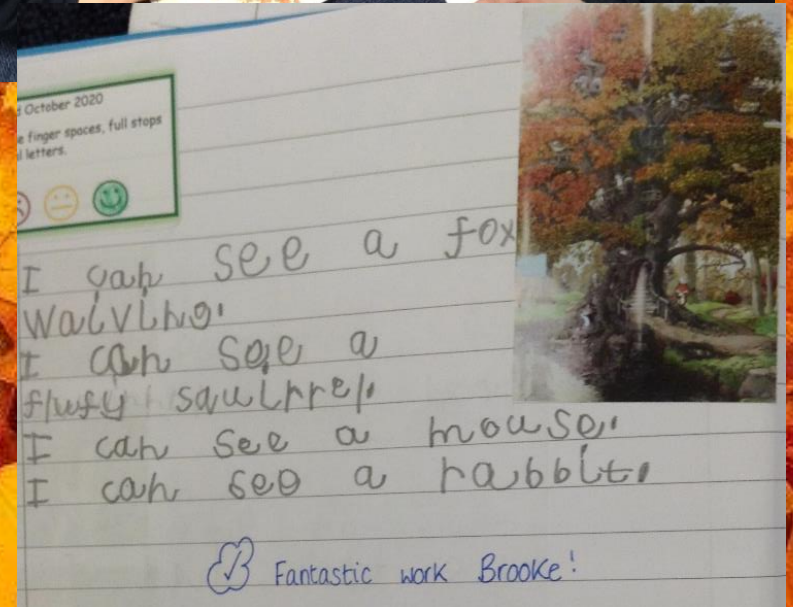 October 2020
finger spaces, full stops
letters.
I can see a fox
waiving.
I can see a
flufy squirrel.
I can see a mouse.
I can see a rabbit.
Fantastic work Brooke!